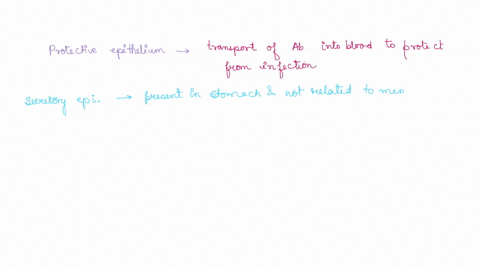 Protective epithelium → transport of Ab into blood to protect
from infection
Secretory epi. → present in stomach & not related to men